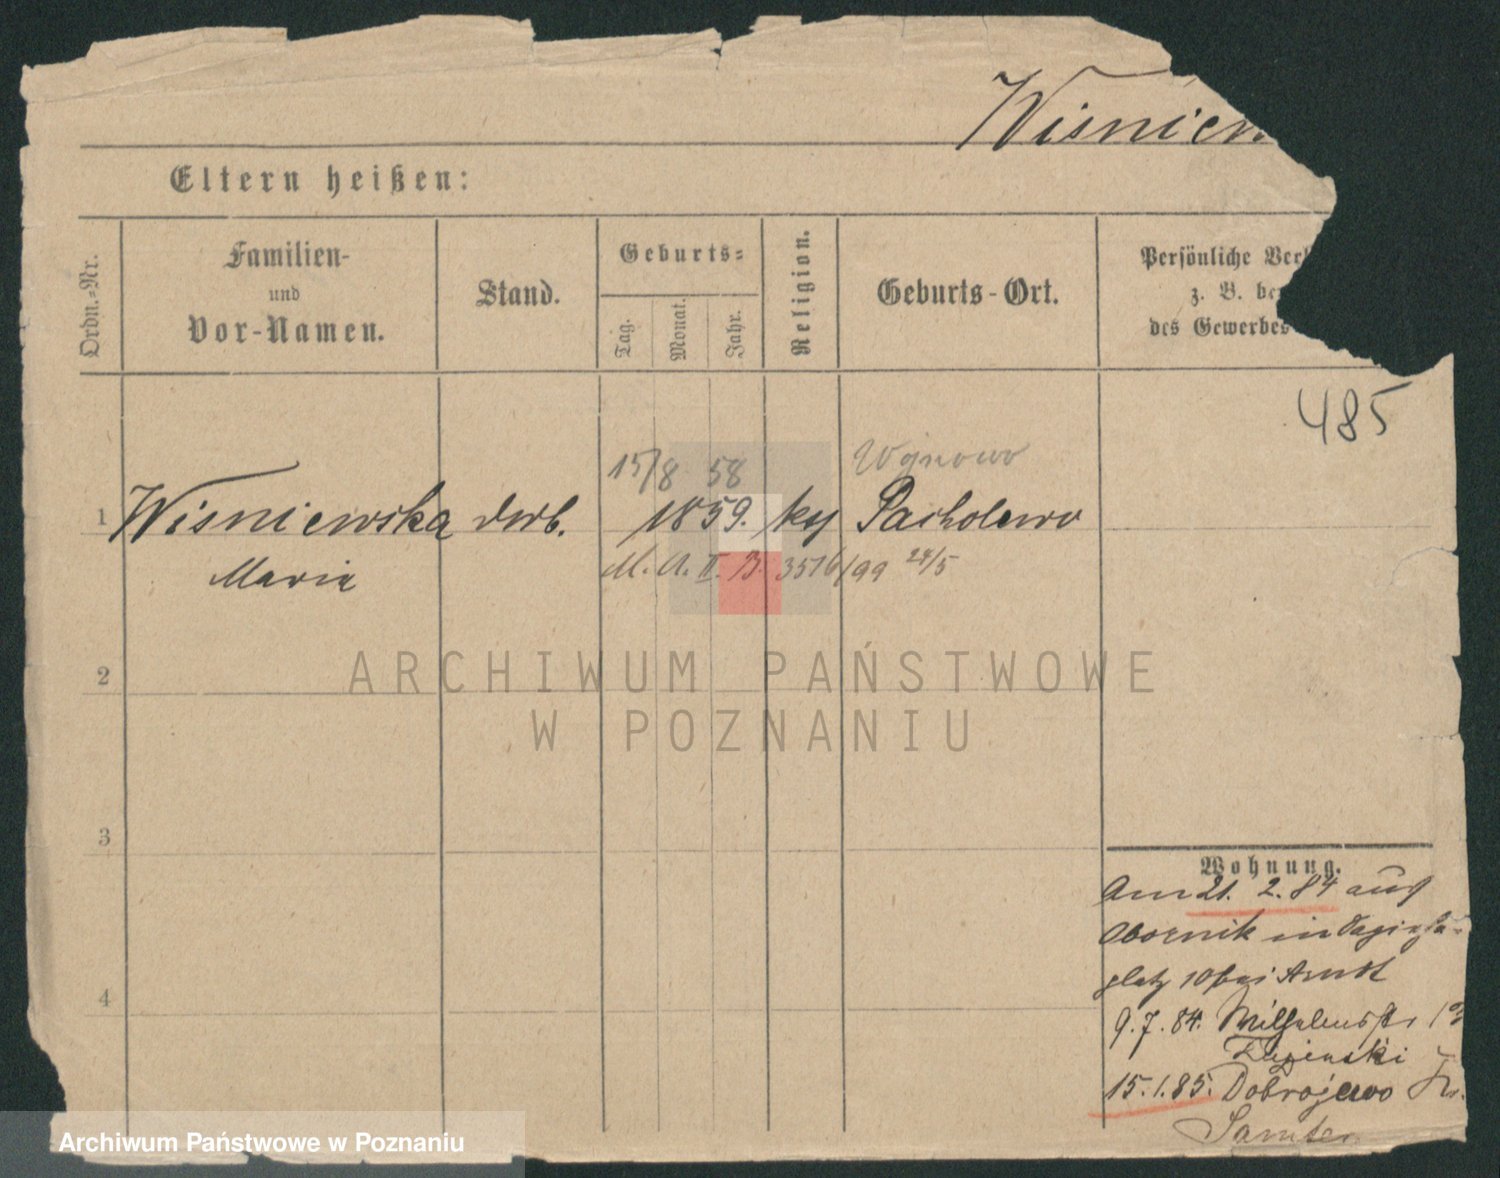 Wisniew
Eltern heißen:
Ordn.-Nr.
Familien-
und
Vor-Namen.
Stand.
Geburts-
Tag.
Monat.
Jahr.
Religion.
Geburts-Ort.
Persönliche Ver
z. B. be
des Gewerbes
485
15/8 58
Wojnowo
1 Wisniewska unverh. 1859. kath Pacholewo
Maria
M. A. II. B. 3576/99 24/5
2
3
4
Wohnung.
Am 21. 2. 84 aus
Obornik in
platz 10 bei Arndt
9. 7. 84. Wilhelmsstr
15. 1. 85. Dobrojewo Kr.
Samter
ARCHIWUM PAŃSTWOWE
W POZNANIU
Archiwum Państwowe w Poznaniu